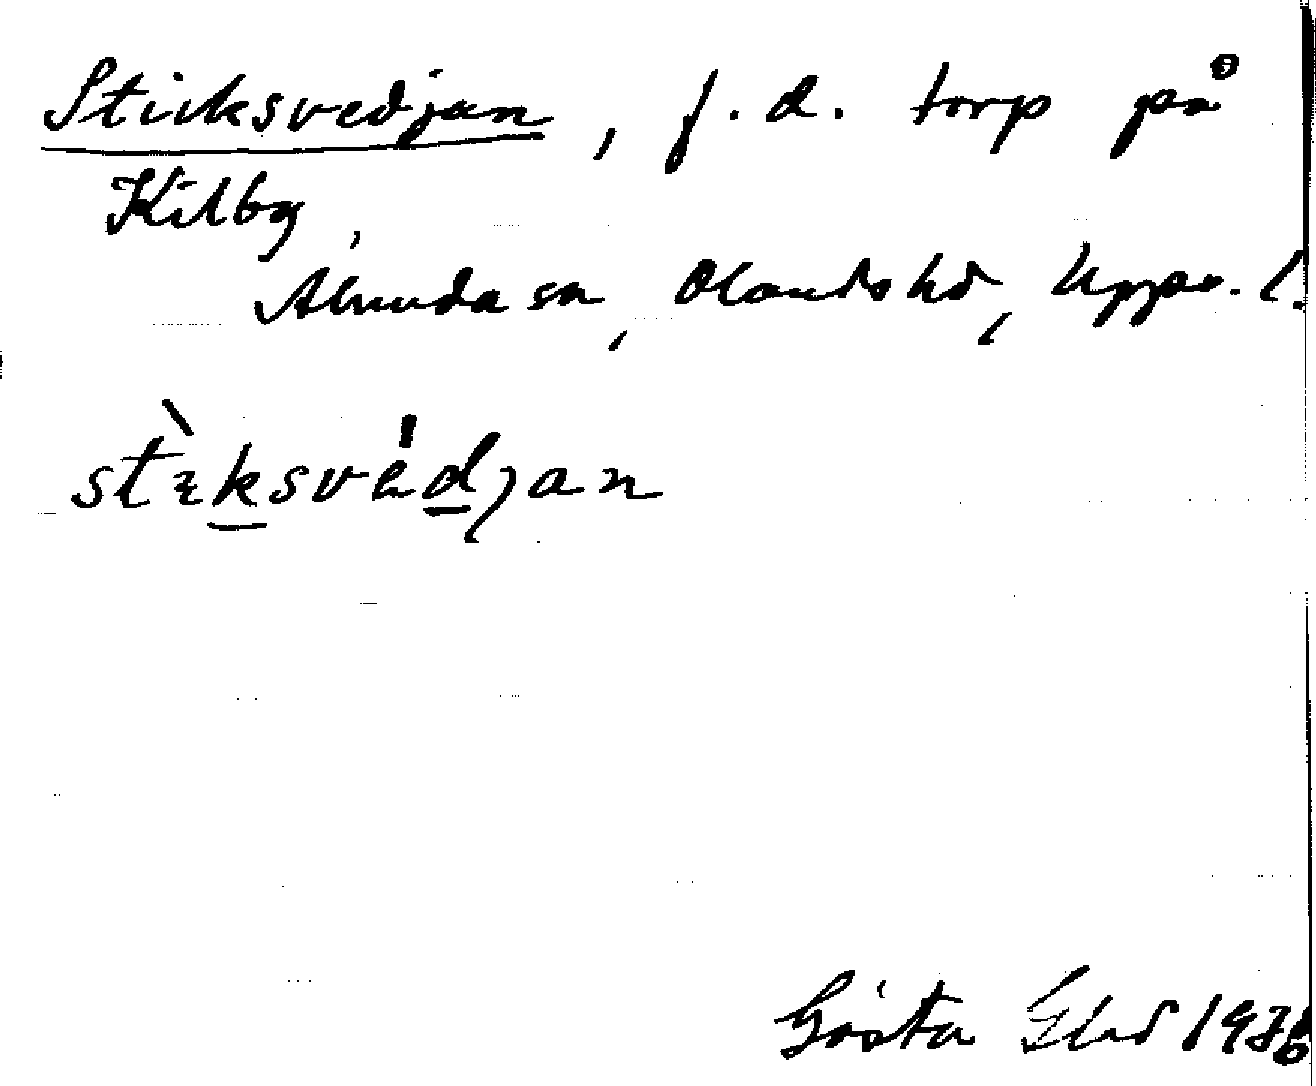 Sticksvedjan, f.d. torp på
Kilby,
Alunda sn, Olands hd, Upps. l.
stɪ̀ksvèdjan
Gösta Glad 1976